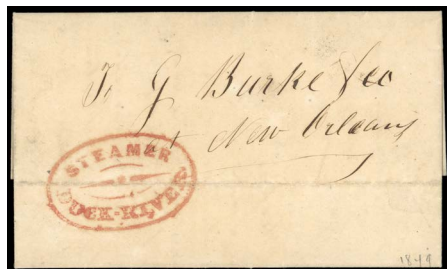 J. G Burke & Co
New Orleans
STEAMER
DUCK-RIVER
1849